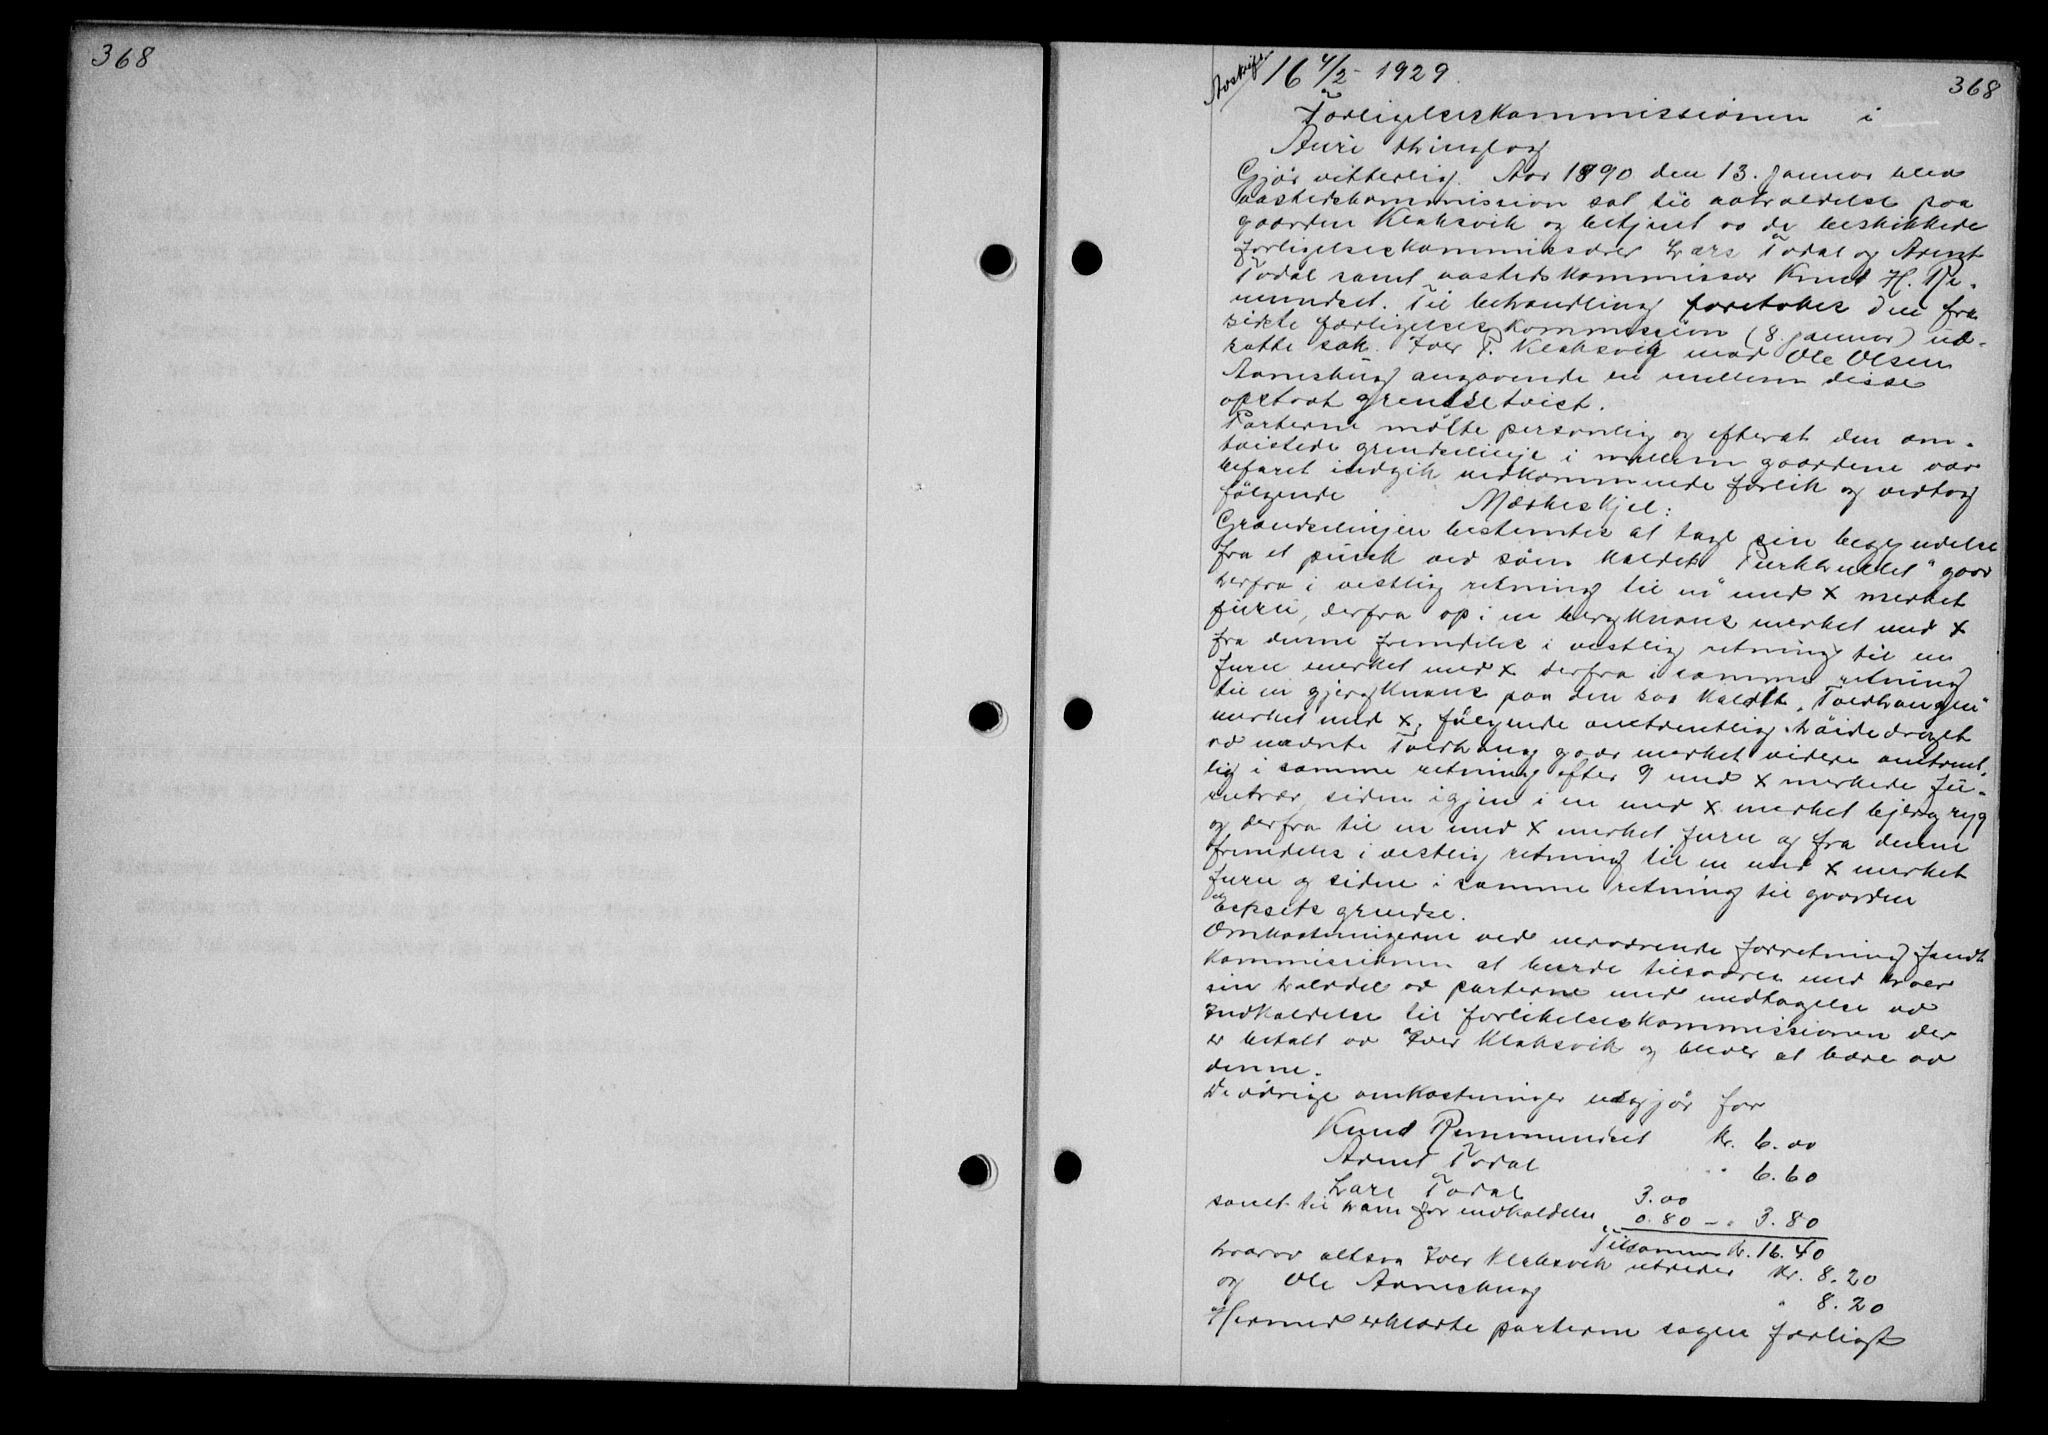 368
368
Avskrift
16 4/2 - 1929.
Forligelseskommissionen i
Aure thinglag
Gjør vitterlig. Aar 1890 den 13. januar blev
aastedskommission sat til avholdelse paa
gaarden Klaksvik og betjent av de beskikkede
forligelseskommissærer Lars Todal og Arent
Todal samt aastedskommissær Knut H. Re-
mmundset. Til behandling foretokes den fra
sidste forligelseskommission (8. januar) ud-
satte sak. Iver T. Klaksvik mod Ole Olsen
Aarneskug angaaende en mellem disse
opstaat grendsetvist.
Parterne møtte personlig og efterat den om-
tvistede grendselinje i mellem gaardene var
befaret indgik vedkommende forlik og vedtog
følgende Mærkeskjel:
Grændselinjen bestemtes at tage sin begyndelse
fra et punkt ved søen kaldet gaar
derfra i vestlig retning til en med x merket
furu, derfra op i en bergknaus merket med x
fra denne fremdeles i vestlig retning til en
furu merket med x derfra i samme retning
til en bjergknaus paa den saa kaldte
merket med x, følgende omtrentlig høidedraget
av nævnte gaar merket videre omtrent-
lig i samme retning efter 9 med x merkede fu-
rutrær, siden igjen i en med x merket bjergryg
og derfra til en med x merket furu og fra denne
fremdeles i vestlig retning til en med x merket
furu og siden i samme retning til gaarden
Eeksets grendse.
Omkostningerne ved nærværende forretning fandt
kommissionen at burde tilsvares med hver
sin halvdel av parterne med undtagelse av
indkaldelse til forlikelseskommissionen der
er betalt av Iver Klaksvik og bliver at bære av
denne.
De øvrige omkostninger udgjør for
Knud Remmundset kr. 6.00
Arent Todal " 6.60
Lars Todal 3.00
samt til ham for indkaldelse 0.80 - " 3.80
Tilsammen kr. 16.40
hvorav altsaa Iver Klaksvik utreder kr. 8.20
og Ole Aarneskug " 8.20
Hermed erklærte parterne sagen forligt